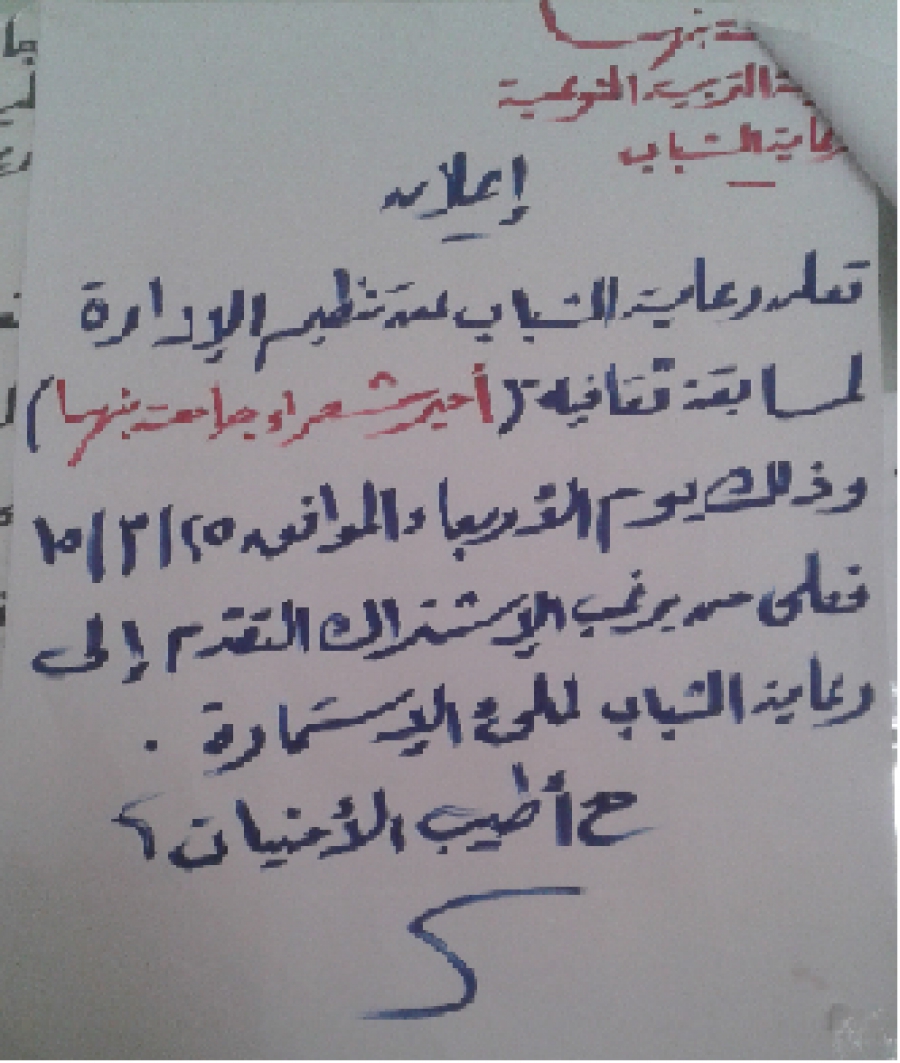 ـة بنهـا
ـة التربية النوعية
رعاية الشباب
إعلان
تعلن رعاية الشباب عن تنظيم الإدارة
لمسابقة ثقافية (أمير شعراء جامعة بنها)
وذلك يوم الأربعاء الموافق ٢٥/٣/١٥
فعلى من يرغب الإشتراك التقدم إلى
رعاية الشباب لملئ الإستمارة .
مع أطيب الأمنيات ؟